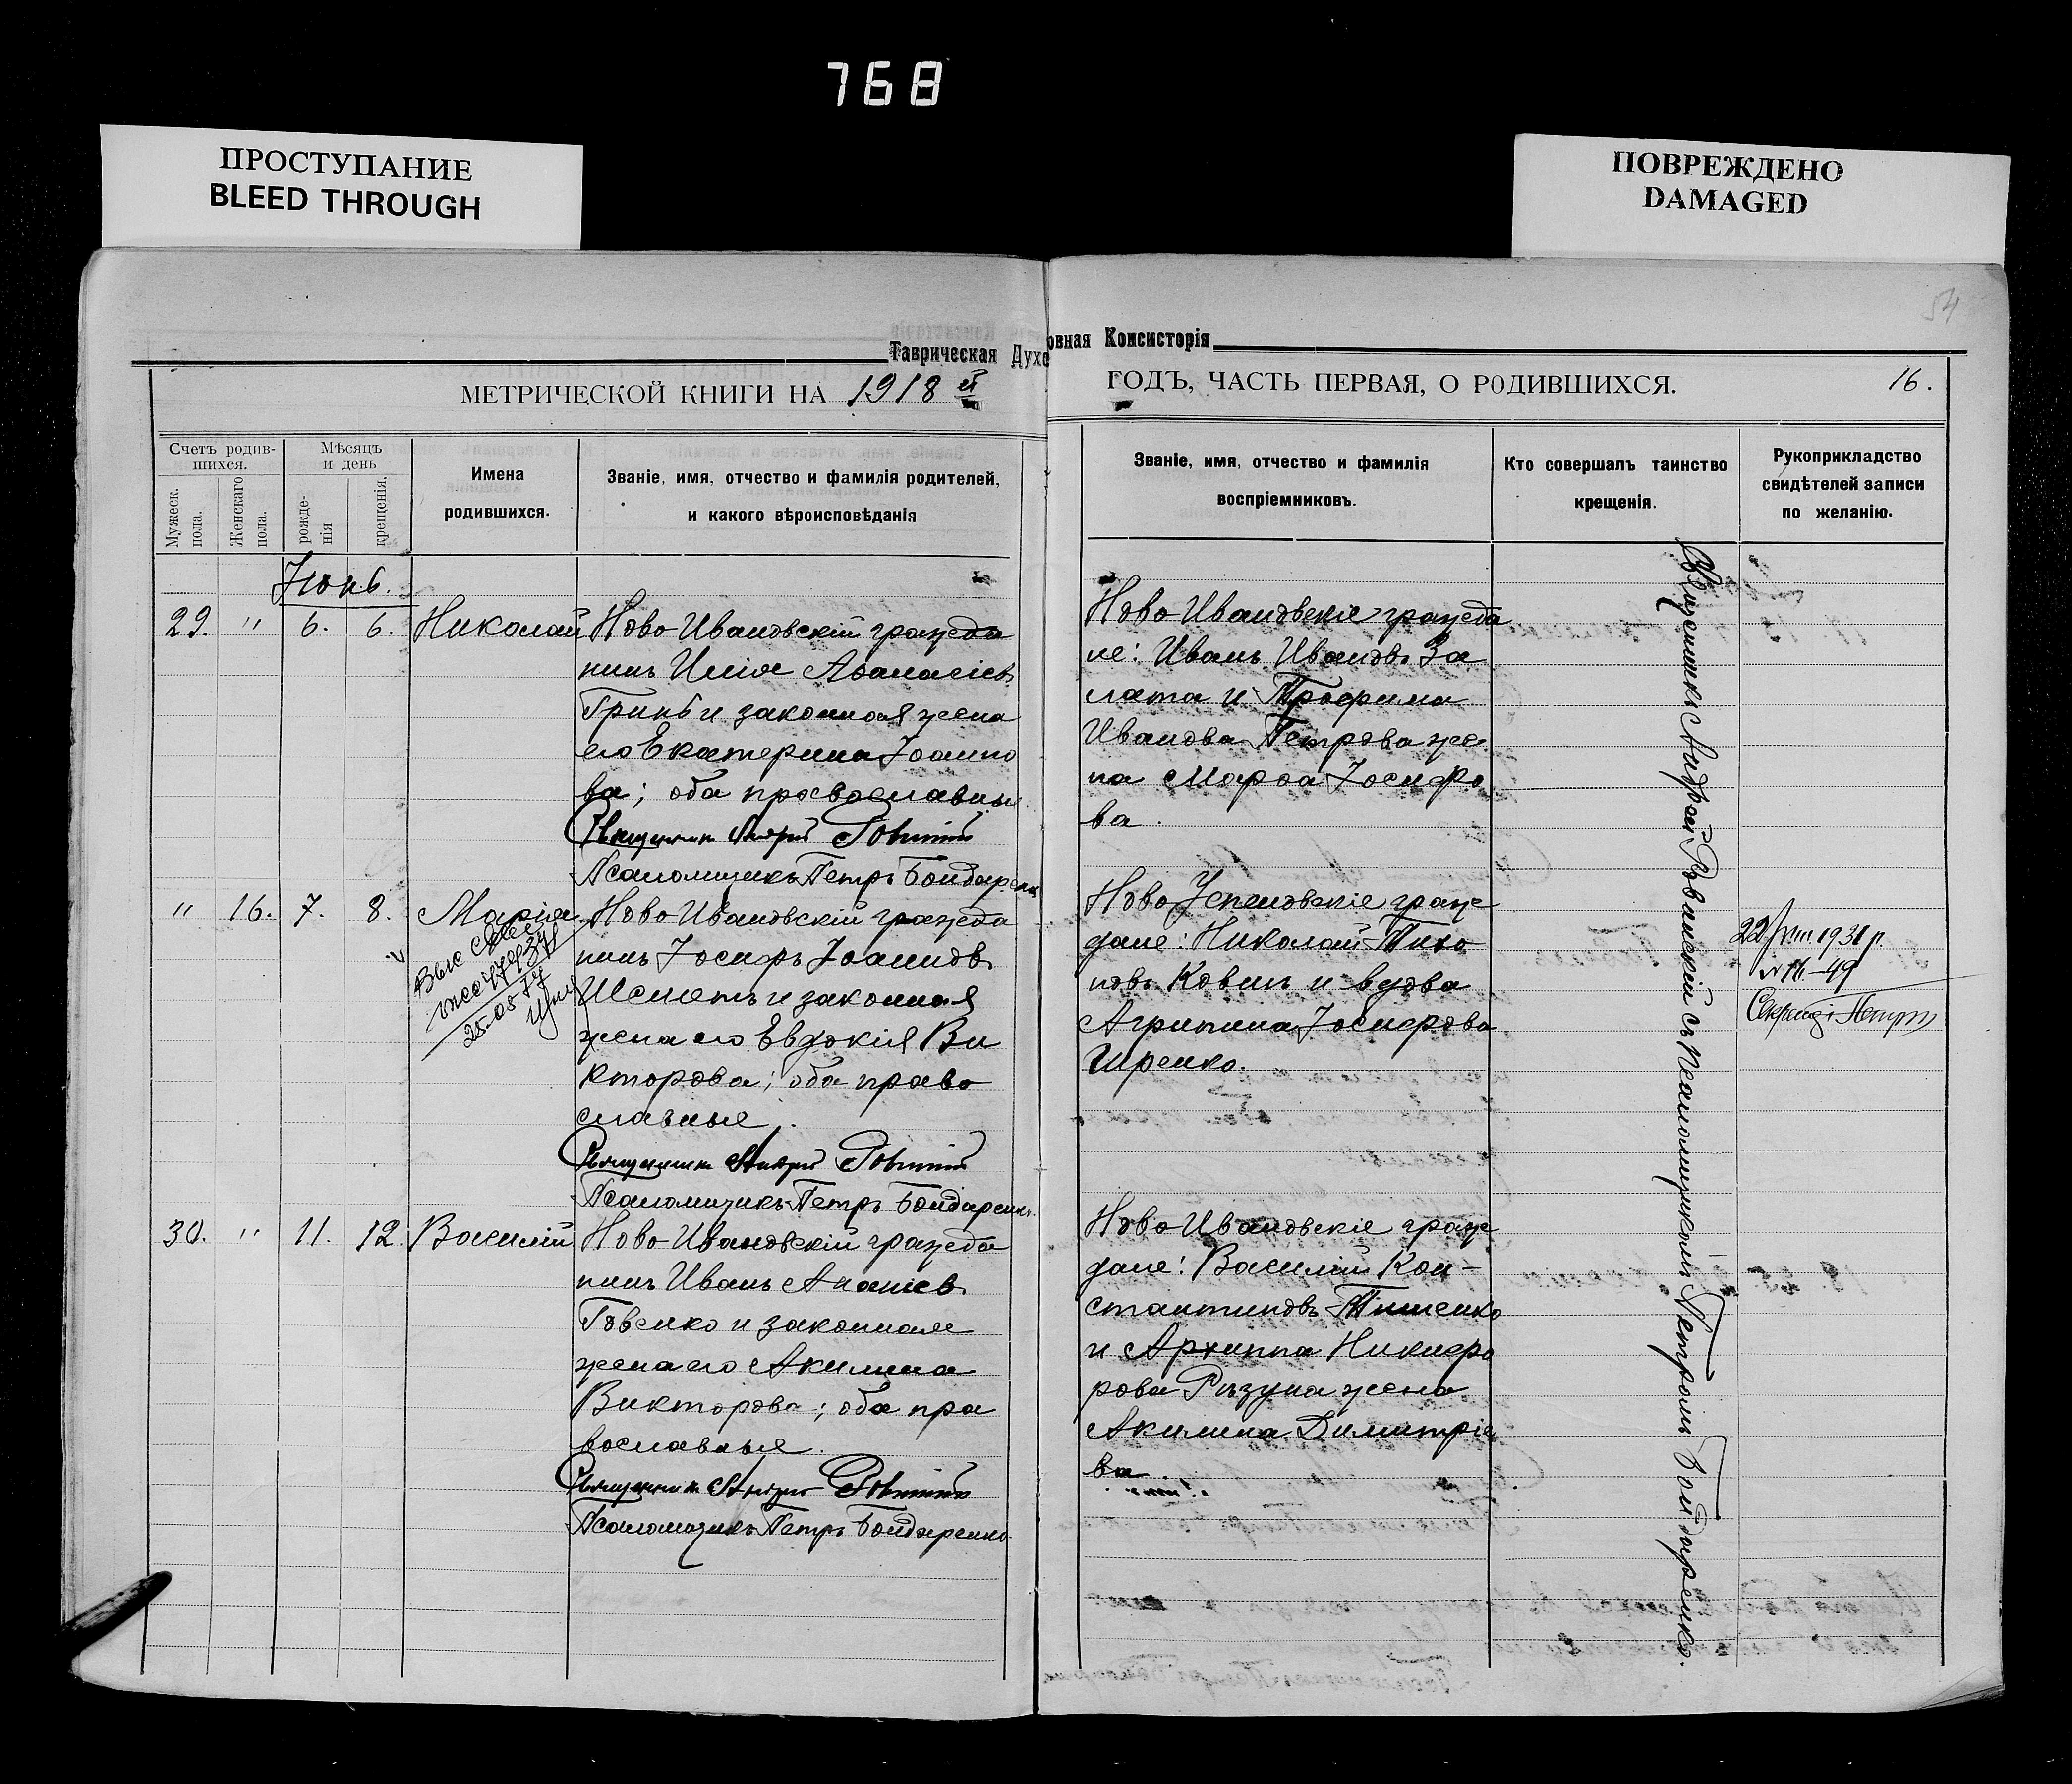 768
ПРОСТУПАНИЕ
BLEED THROUGH
ПОВРЕЖДЕНО
DAMAGED
54
Таврическая Духовная Консисторія
МЕТРИЧЕСКОЙ КНИГИ НА 1918 й ГОДЪ, ЧАСТЬ ПЕРВАЯ, О РОДИВШИХСЯ. 16.
Счетъ родив-
шихся.
Мужеск.
пола.
Женскаго
пола.
Мѣсяцъ
и день
рожде-
нія
крещенія.
Имена
родившихся.
Званіе, имя, отчество и фамилія родителей,
и какого вѣроисповѣданія
Званіе, имя, отчество и фамилія
воспріемниковъ.
Кто совершалъ таинство
крещенія.
Рукоприкладство
свидѣтелей записи
по желанію.
Іюнь.
29. " 6. 6. Николай
Ново Ивановскій гражда
нинъ Илія Аѳанасіевъ
Гринь и законная жена
его Екатерина Іоанно
ва; оба православные
Священникъ Андрей Ровинскій
Псаломщикъ Петръ Бондаренко
Ново Ивановскіе гражда
не: Иванъ Ивановъ За
лата и Трофима
Иванова Петрова же
на Марѳа Іосифо
ва.
" 16. 7. 8. Марія
25-05-77
Ново Ивановскій гражда
нинъ Іосифъ Іоанновъ
Шеметъ и законная
жена его Евдокія Ви
кторова; оба право
славные.
Священникъ Андрей Ровинскій
Псаломщикъ Петръ Бондаренко
Ново Успеновскіе граж
дане: Николай Тихо
новъ Ковинъ и вдова
Агрипина Іосифова
Гиренко.
22/VIII 1931 р.
№ 16-49
30. " 11. 12. Василій
Ново Ивановскій гражда
нинъ Иванъ Ананіевъ
Говенко и законная
жена его Акилина
Викторова; оба пра
вославные.
Священникъ Андрей Ровинскій
Псаломщикъ Петръ Бондаренко
Ново Ивановскіе граж
дане: Василій Кон-
стантиновъ Тищенко
и Архиппа Никифо
рова Рѣзуна жена
Акилина Димитріе
ва.
Священникъ Андрей Ровинскій съ Псаломщикомъ Петромъ Бондаренко.